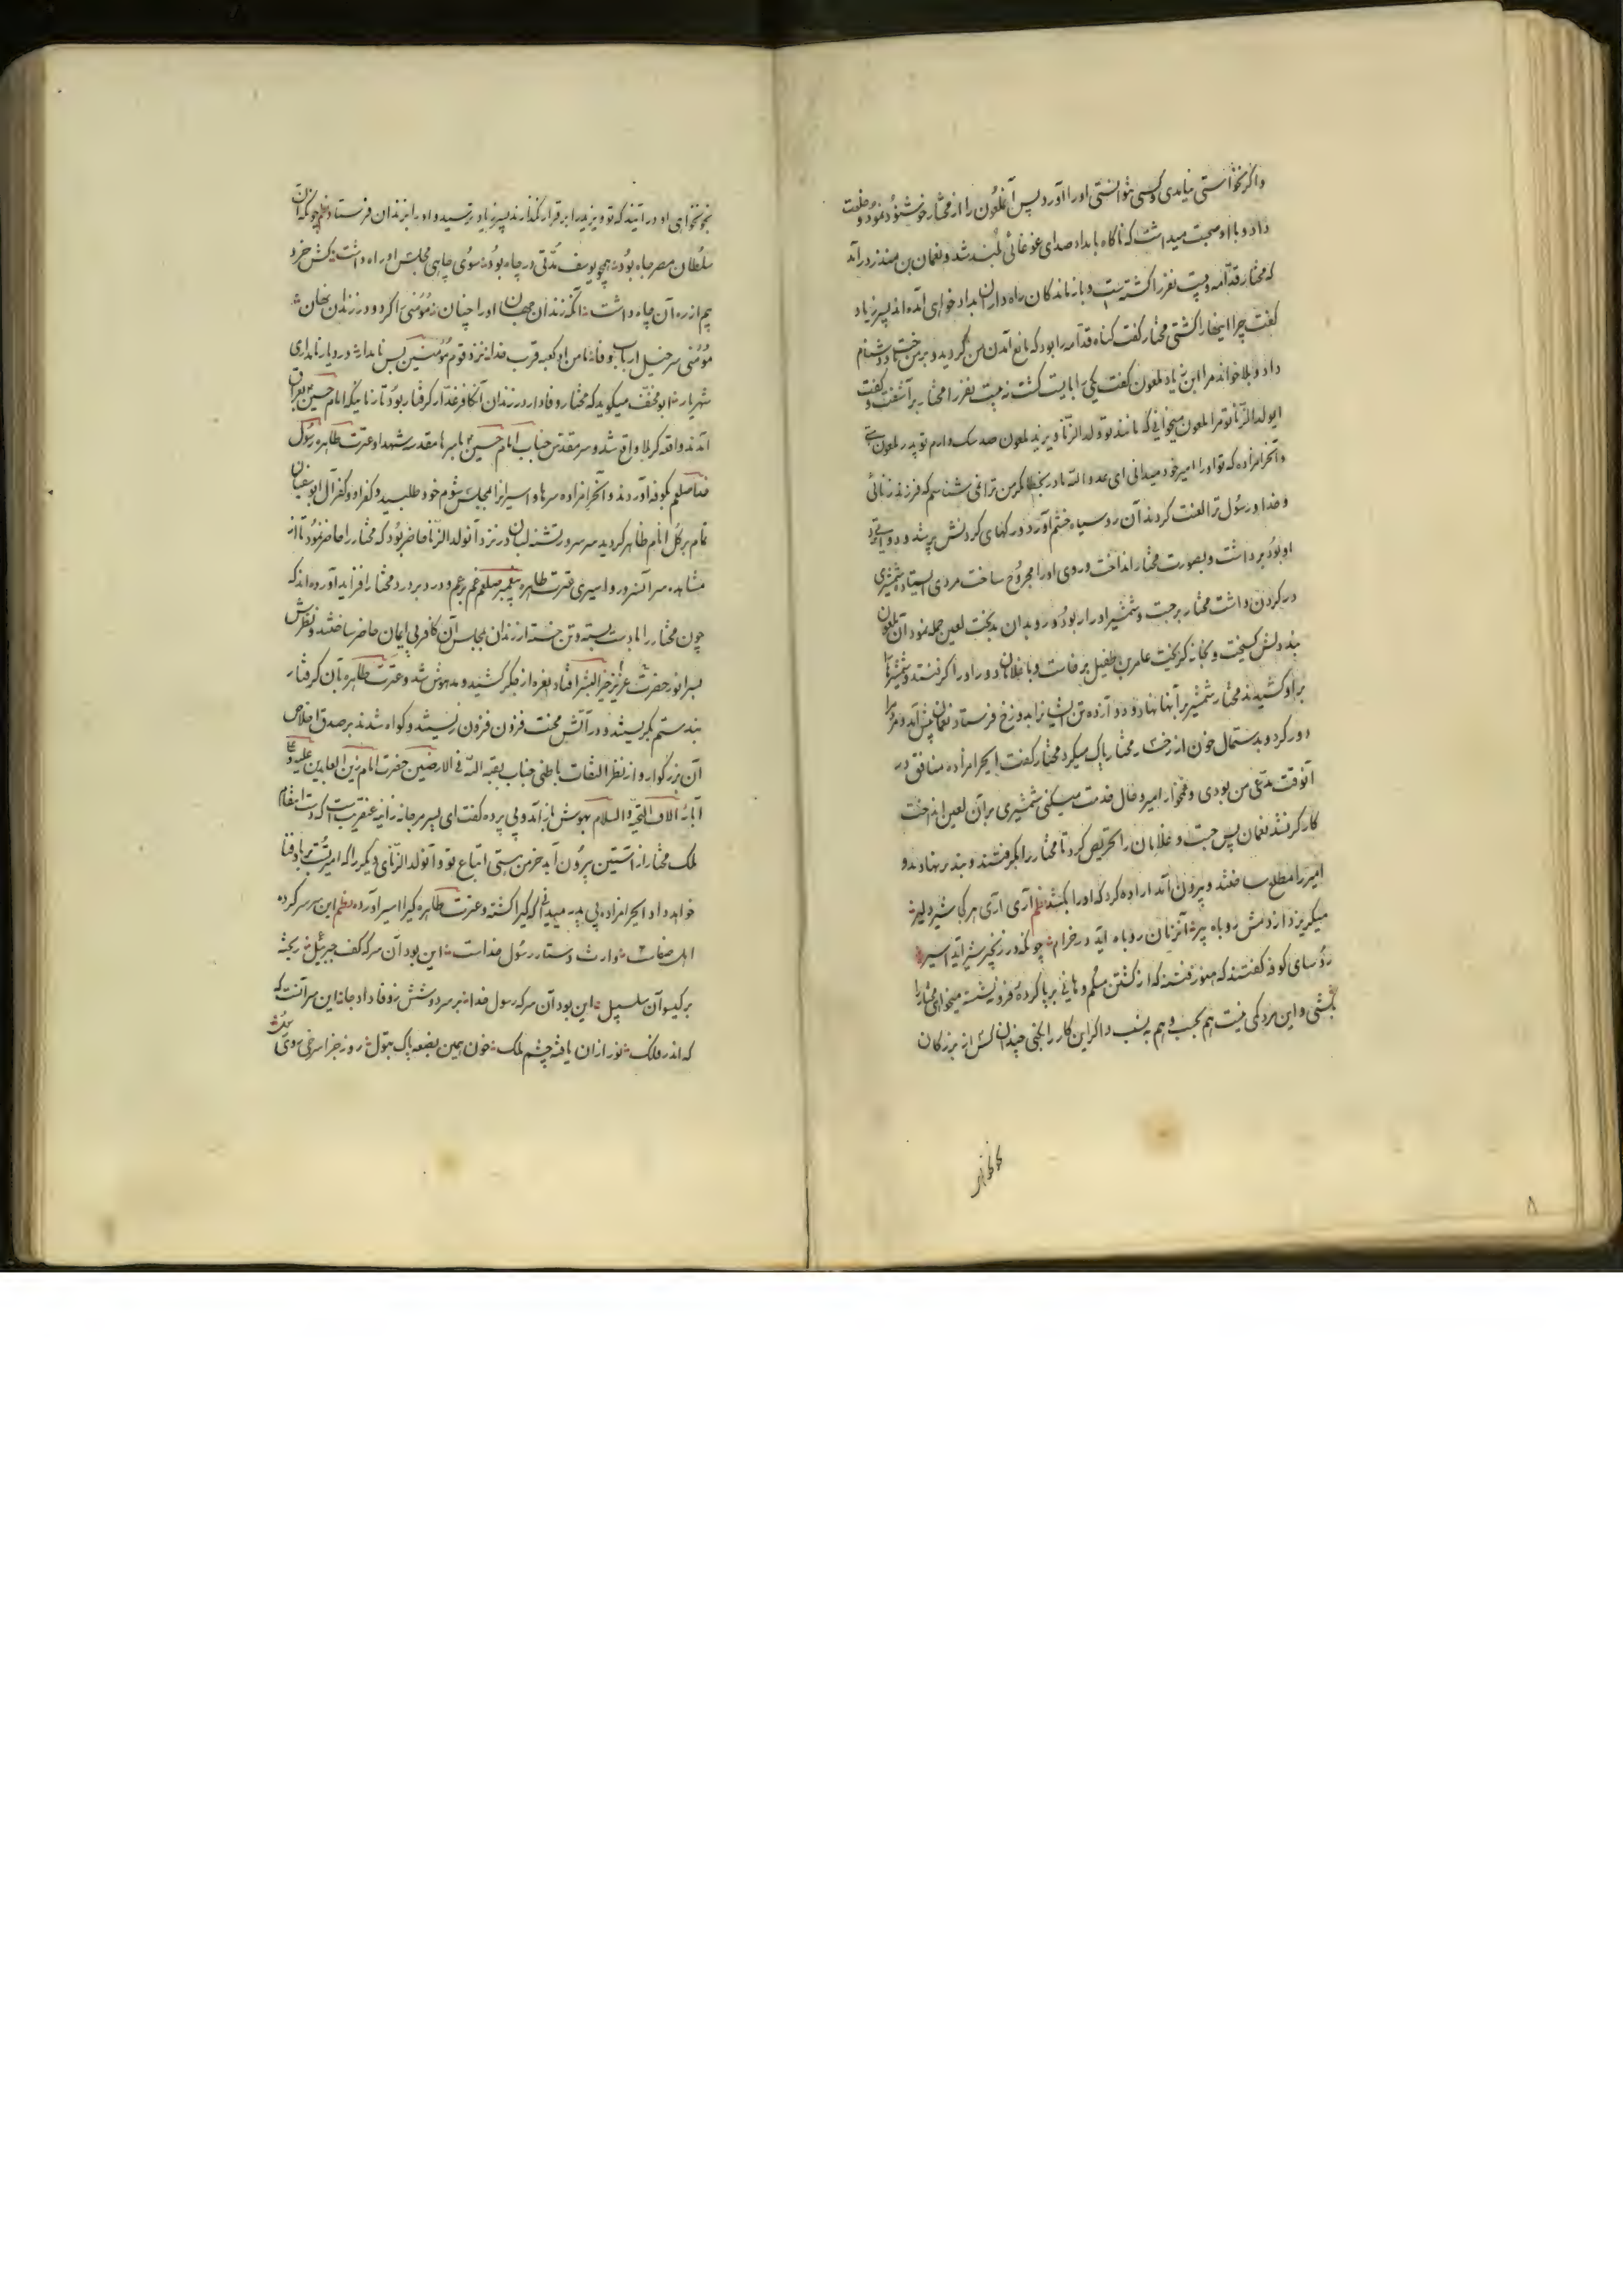 واکر نخواستی نیامدی و کسی نتوانستی اورا آورد پس آنملعون را از مختار خوشنود نمود و خلعت
داد و با او صحبت میداشت که ناکاه بامداد صدای غوغائی بلند شد و نعمان بن منذر درآمد
که مختار قدامه و بیست نفر را کشته است و بازماندکان راه داران بداد خواهی آمده اند پسر زیاد
کفت چرا اینهارا کشتی مختار کفت کناه قدامه را بود که مانع آمدن من کردید و بر من دشنام
داد و بلا خواند مرا ابن زیاد ملعون کفت یکی را بایست کشت نه بیست نفر را مختار برآشفت و کفت
ایولدالزنا تو مرا ملعون میخوانی که مانند تو ولدالزنا و یزید ملعون صد سک دارم تو پدر ملعون
وآنحرامزاده که تو اورا امیر خود میدانی ای عدو الله مادر بخطا مکر من ترا نمی شناسم که فرزند زنائی
و خدا و رسول ترا لعنت کردند آن رو سیاه خشم آورد و رکهای کردنش پر شد و دواتی
او بود برداشت و بصورت مختار انداخت و روی اورا مجروح ساخت مردی ایستاده شمشیری
در کردن داشت مختار برجست و شمشیر اورا ربود و رو بدان بدبخت لعین حمله نمود آن ملعون
بند دلش کسیخت و بخانه کریخت عامر بن طفیل برخاست و با غلامان دور اورا کرفتند و شمشیرها
بر او کشیدند مختار شمشیر برآنها نهاد و دوازده تن ایشانرا بدوزخ فرستاد نعمان پیش آمد و مردم را
دور کرد و بدستمال خون از رخسار مختار پاک میکرد مختار کفت ایحرامزاده منافق در
آنوقت مدعی من بودی و غمخوار امیر و حال خدمت میکنی شمشیری برآن لعین انداخت
کار کر نشد نعمان پس جست و غلامان را تحریص کرد تا مختار را بکرفتند و بند بر نهادند و
امیر را مطلع ساختند و بیرون آمد اراده کرد که اورا بکشد نظم آری آری هر کجا شیر دلیر
میکریزد از دمش روباه پیر آنزمان روباه آید در خرام چونکه در زنجیر شیر آید اسیر
رؤسای کوفه کفتند که هنوز فتنه که از کشتن مسلم و هانی بر پا کرده فرو ننشسته میخواهی مختار را
بکشی و این مرد کمی نیست هم بحسب و هم بنسب و اکر این کار را بکنی چندان کس از بزرکان
کاظم
۸
بخونخواهی او در آیند که تو و یزید را برقرار نکذارند پسر زیاد بترسید و اورا بزندان فرستاد نظم چونکه آن
سلطان مصر جاه بود همچو یوسف مدتی در چاه بود سوی چاهی مجلس اورا داشت کش خرد
بیم از ره آن چاه داشت آنکه زندان جهان اورا چنان مؤمنی را کرد و در زندان نهان شد
مؤمنی سرخیل ارباب وفا نامن او کعبه قرب خدا نزد قوم مؤمنین بس نامدار در دیار نامداری
شهریار ابومخنف میکوید که مختار وفادار در زندان آنکافر غدار کرفتار بود تا زمانیکه امام حسین بعراق
آمدند واقعه کربلا واقع شد و سر مقدس جناب امام حسین با سرها مقدسه شهدا و عترت طاهره رسول
خدا صلعم بکوفه آوردند و آنحرامزاده سرها و اسیرانرا بمجلس شوم خود طلبید و کفر او و کفر آل ابوسفیان
تمام بر کل انام ظاهر کردید سر سرور تشنه لبان در نزد آنولدالزنا حاضر بود که مختار را حاضر نمود تا از
مشاهده سر آنسرور و اسیری عترت طاهره پیغمبر صلعم غم بر غم و درد بر درد مختار افزاید آورده اند که
چون مختار را با دست بسته و تن خسته از زندان بمجلس آن کافر بی ایمان حاضر ساختند و نظرش
بسر انور حضرت عزیز خیرالبشر افتاد نعره از جکر کشید و مدهوش شد و عترت طاهره بآن کرفتار
بند ستم بکریستند و در آتش محنت فزون فزون زیستند و کواه شدند بر صدق اخلاص
آن بزرکوار و از نظر التفات باطنی جناب بقیه الله فی الارضین حضرت امام زین العابدین علیه و علی
آبائه آلاف التحیة والسلام بهوش باز آمد و بی پرده کفت ای پسر مرجانه زانیه عنقریبست که دست انتقام
ملک مختار از آستین بیرون آید خرمن هستی اتباع تو و آنولدالزنای دیکر را که امیر تست بباد فنا
خواهد داد ایحرامزاده بی پدر میدانی که کیرا کشته و عترت طاهره کیرا اسیر آورده نظم این سر سر کرده
اهل صفاست وارث دستار رسول خداست این بود آن سر که کف جبرئیل ریخته
بر کیسوآن سلسبیل این بود آن سر که رسول خدا بر سر دوشش ز وفا داد جا این سر آنست که
که اندر فلک نور ازان یافته چشم ملک خون همین بضعه پاک بتول روز جزا سرخی روی